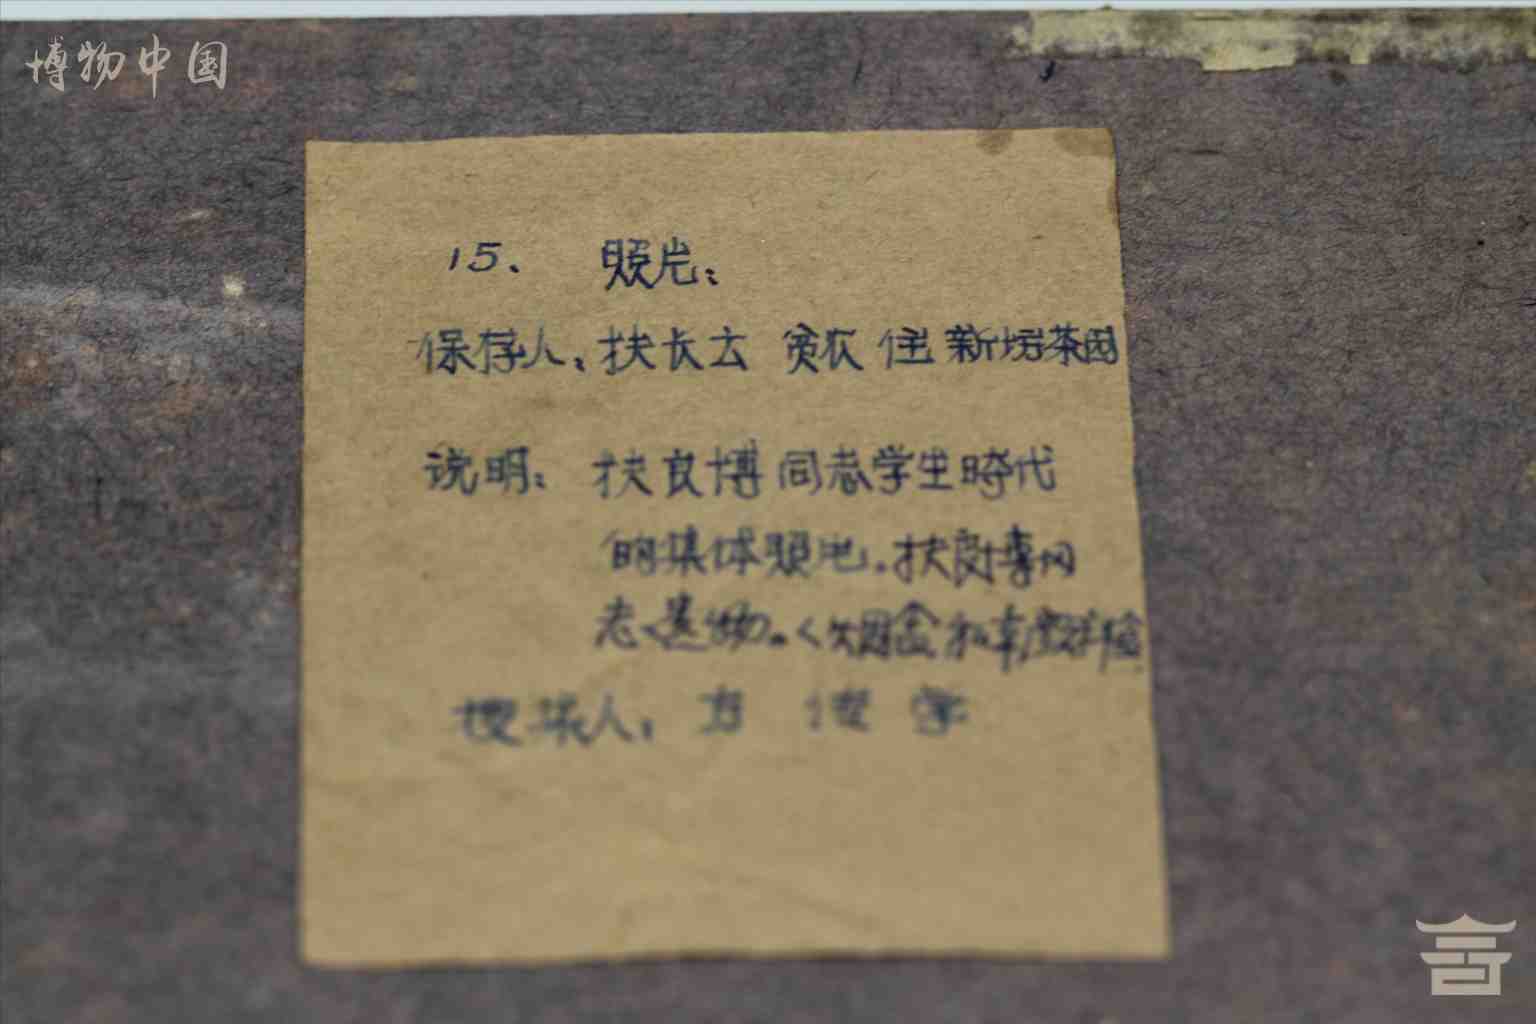 博物中国
15. 照片：
保存人：扶长去 贫农 住新坊茶园
说明：扶良博同志学生時代
的集体照片。扶良博同
志遗物。〈烟盒和
搜集人：方 俊 学